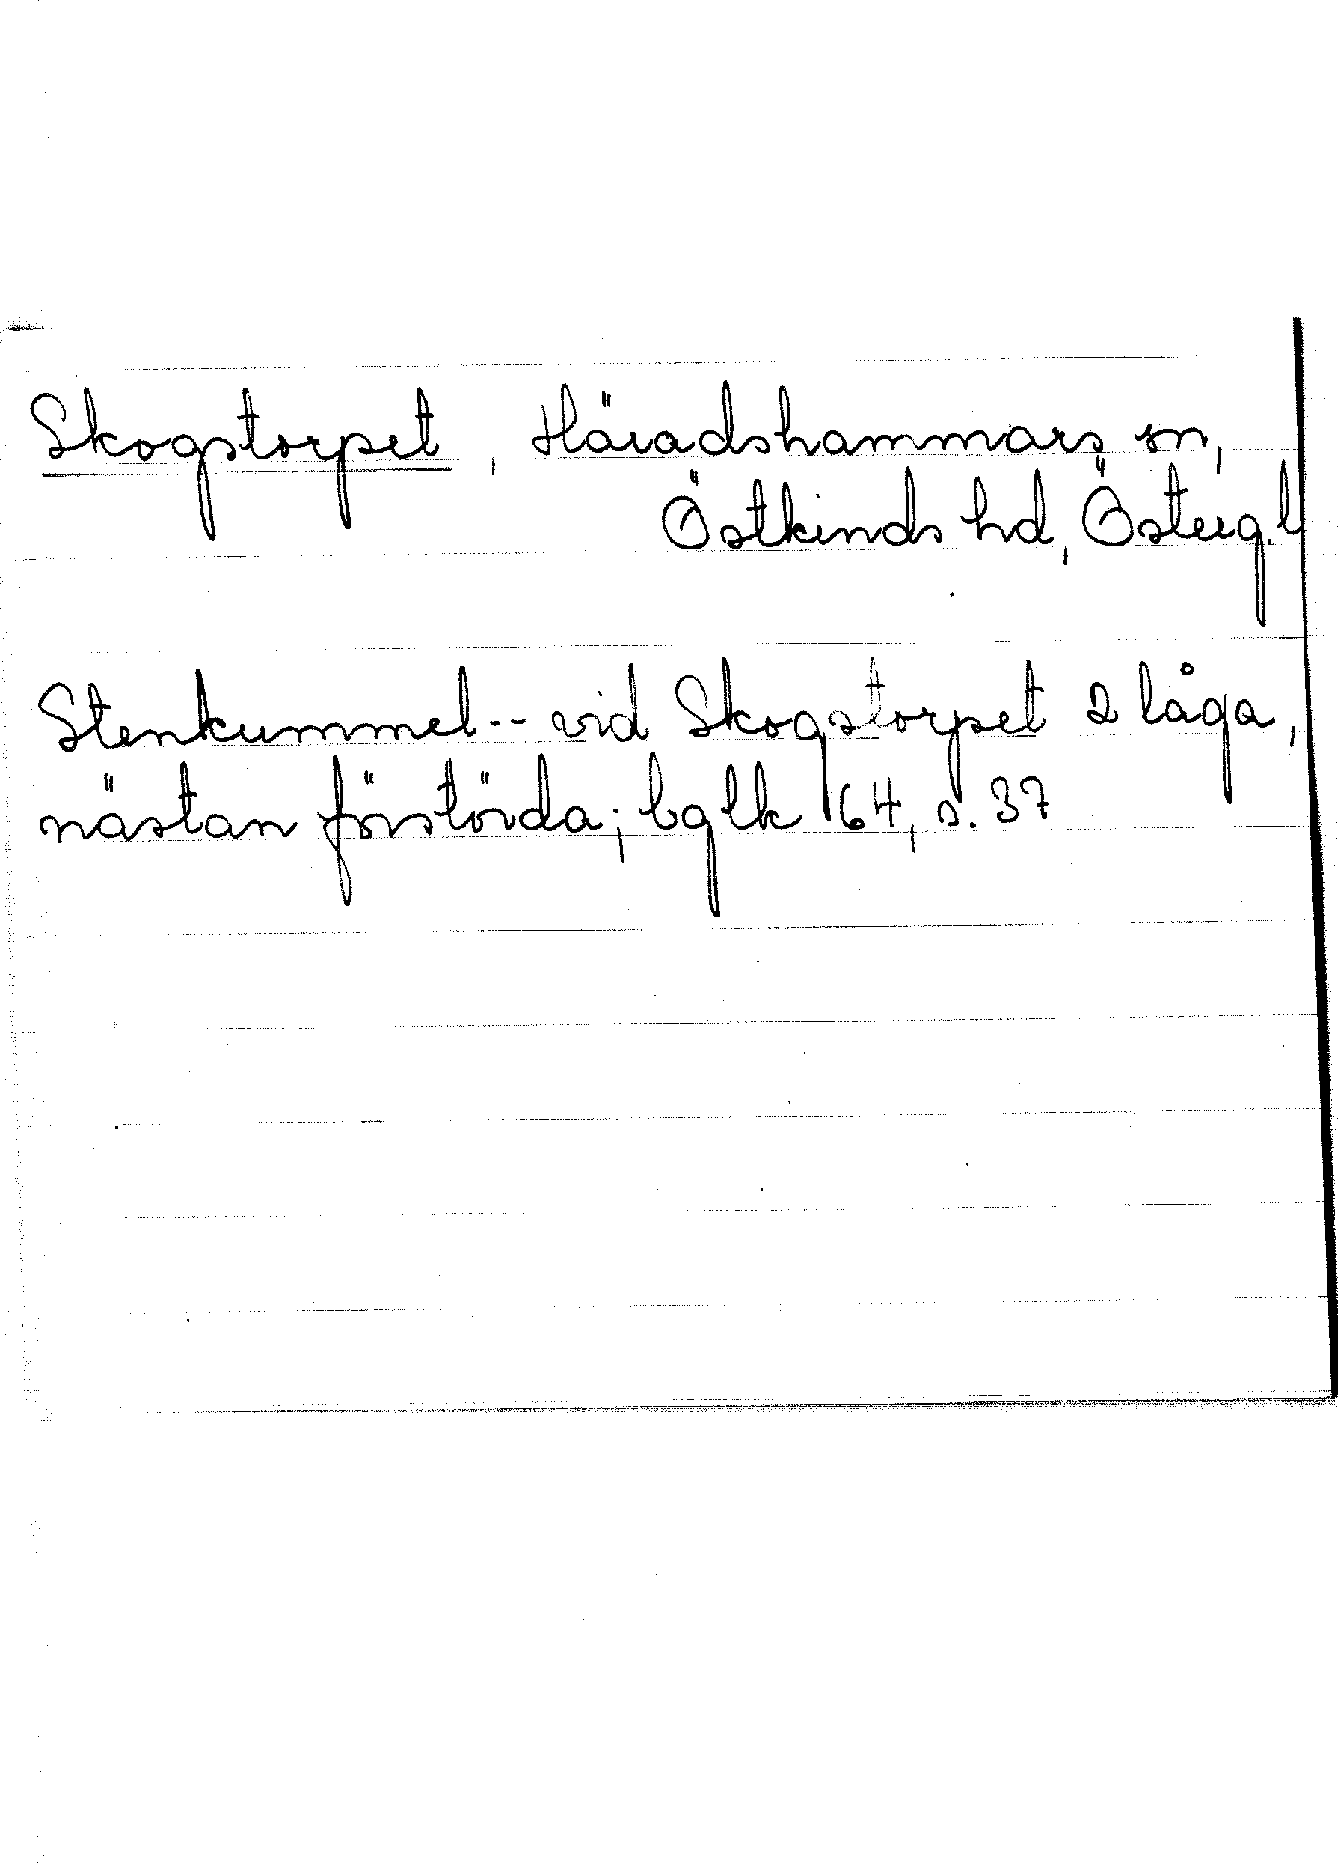 Skogstorpet, Häradshammars sn,
Östkinds hd, Österg.l
Stenkummel -- vid Skogstorpet 2 låga,
nästan förstörda; bglk 164, s. 37